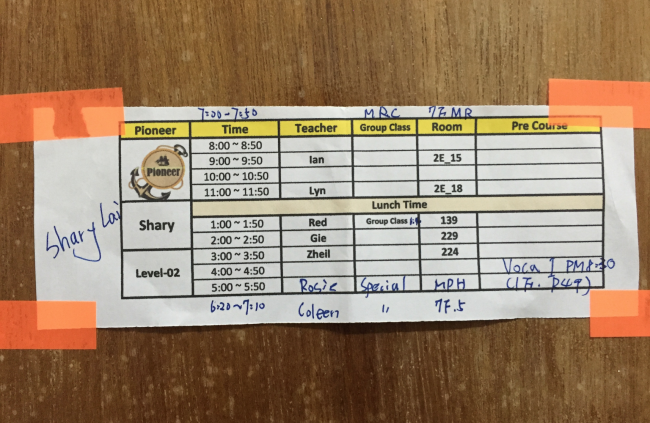 7:00-7:50 MRC 7F MR
Pioneer Time Teacher Group Class Room Pre Course
8:00 ~ 8:50
9:00 ~ 9:50 Ian 2E_15
Pioneer
10:00 ~ 10:50
11:00 ~ 11:50 Lyn 2E_18
Lunch Time
Shary Lai
Shary 1:00 ~ 1:50 Red Group Class 139
2:00 ~ 2:50 Gie 229
3:00 ~ 3:50 Zheil 224
Level-02 4:00 ~ 4:50 Voca I PM8:30
5:00 ~ 5:50 Rosie Special MPH
6:20~7:10 Coleen " 7F.5